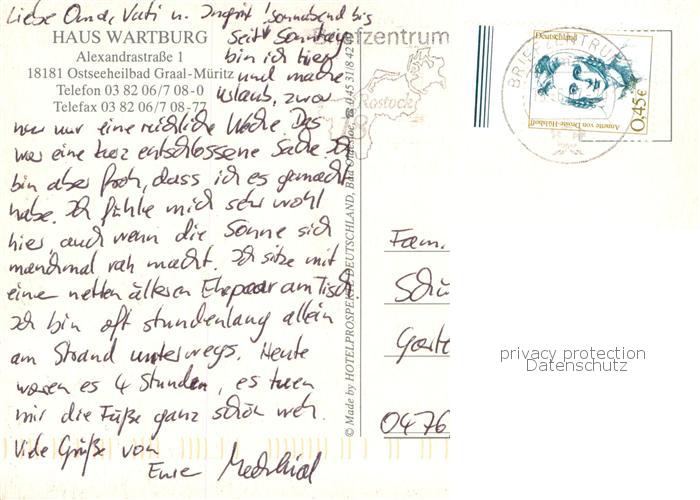 Liebe Oma, Vati u. Ingrid! Sonnabend bis
HAUS WARTBURG
Alexandrastraße 1
18181 Ostseeheilbad Graal-Müritz
Telefon 03 82 06/7 08-0
Telefax 03 82 06/7 08-77
seit Sonntag
bin ich hier
und mache
Urlaub, zwar
nur eine reichliche Woche. Das
war eine kurz entschlossene Sache. Ich
bin aber froh, dass ich es gemacht
habe. Ich fühle mich sehr wohl
hier, auch wenn die Sonne sich
manchmal rah macht. Ich sitze mit
einem netten älteren Ehepaar am Tisch.
Ich bin oft stundenlang allein
am Strand unterwegs. Heute
waren es 4 Stunden, es tuen
mir die Füße ganz schön weh.
Viele Grüße von
Eure Mechthild
© Made by HOTELPROSPEKTE DEUTSCHLAND, Bad Oldesloe, ☎ 0 45 31/8 42
efzentrum
Rostock
18
BRIEFZENTRUM
Deutschland
Annette von Droste-Hülshoff
0,45€
Fam.
Schü
Garte
0476
privacy protection
Datenschutz